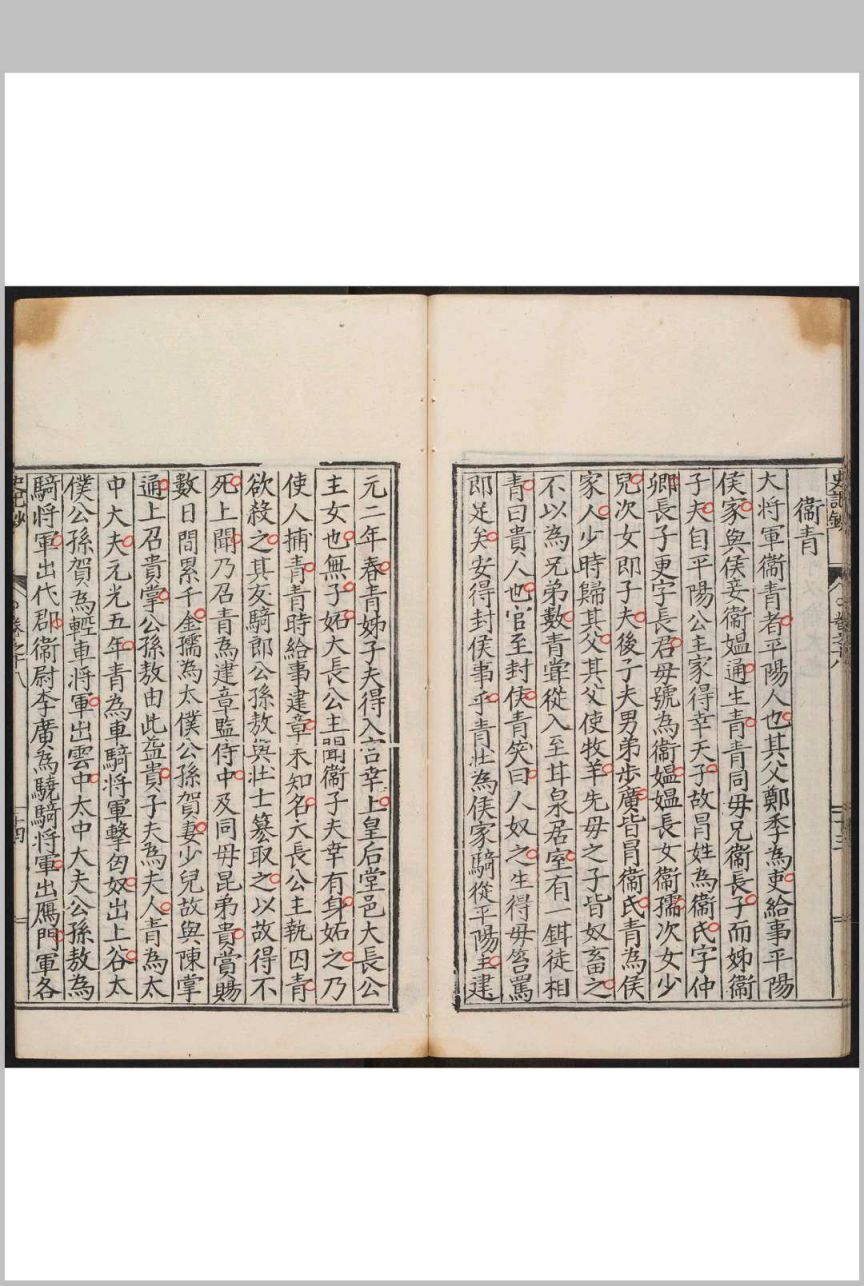 史記鈔
卷之十八
十三
衞青
大將軍衞青者平陽人也其父鄭季為吏給事平陽
侯家與侯妾衞媼通生青青同母兄衞長子而姊衞
子夫自平陽公主家得幸天子故冒姓為衞氏字仲
卿長子更字長君母號為衞媼媼長女衞孺次女少
兒次女即子夫後子夫男弟步廣皆冒衞氏青為侯
家人少時歸其父其父使牧羊先母之子皆奴畜之
不以為兄弟數青甞從入至甘泉居室有一鉗徒相
青曰貴人也官至封侯青笑曰人奴之生得毋笞罵
即足矣安得封侯事乎青壯為侯家騎從平陽主建
元二年春青姊子夫得入宮幸上皇后堂邑大長公
主女也無子妬大長公主聞衞子夫幸有身妬之乃
使人捕青青時給事建章未知名大長公主執囚青
欲殺之其友騎郎公孫敖與壯士篡取之以故得不
死上聞乃召青為建章監侍中及同母昆弟貴賞賜
數日間累千金孺為太僕公孫賀妻少兒故與陳掌
通上召貴掌公孫敖由此益貴子夫為夫人青為太
中大夫元光五年青為車騎將軍擊匈奴出上谷太
僕公孫賀為輕車將軍出雲中太中大夫公孫敖為
騎將軍出代郡衞尉李廣為驍騎將軍出鴈門軍各
史記鈔
卷之十八
十四